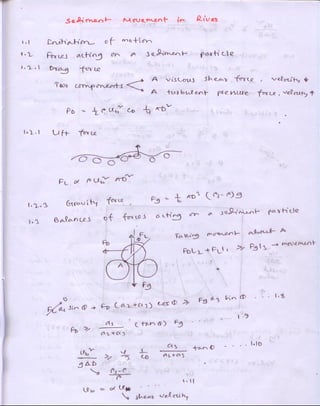 Sediment Movement in Rivers
1.1 Initiation of motion
1.2 Forces acting on a sediment particle
1.2.1 Drag force
Two components
A viscous shear force. velocity ↓
A turbulent pressure force, velocity ↑
F_D = 1/2 ρ U_b² C_D 1/4 πD²
1.2.1 Lift force
F_L ∝ ρ U_b² πD²
1.2.3 Gravity force F_g = 1/6 πD³ (ρ_s-ρ)g
1.3 Balances of forces acting on a sediment particle
F_L
F_D
A
F_g
Taking moment about A
F_D L_2 + F_L L_1 ≥ F_g l_2 → movement
sin Φ + F_D (a_2+a_3) cos Φ ≥ F_g a_3 sin Φ .... 1.8
F_D ≥ a_3/(a_2+a_3) (tan Φ) F_g 1.9
U_b²/(gΔD) ≥ 4/3 1/C_D a_3/(a_2+a_3) tan Φ ... 1.10
ρ_s-ρ/ρ
U_b = α U_* .... 1.11
shear velocity